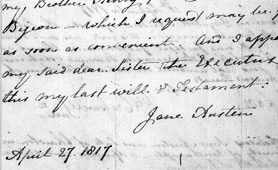 my Brother Henry,
Bijeon which I request may be
as soon as convenient. And I appo
my said dear Sister the Executrix
this my last will & Testament.
Jane Austen
April 27. 1817